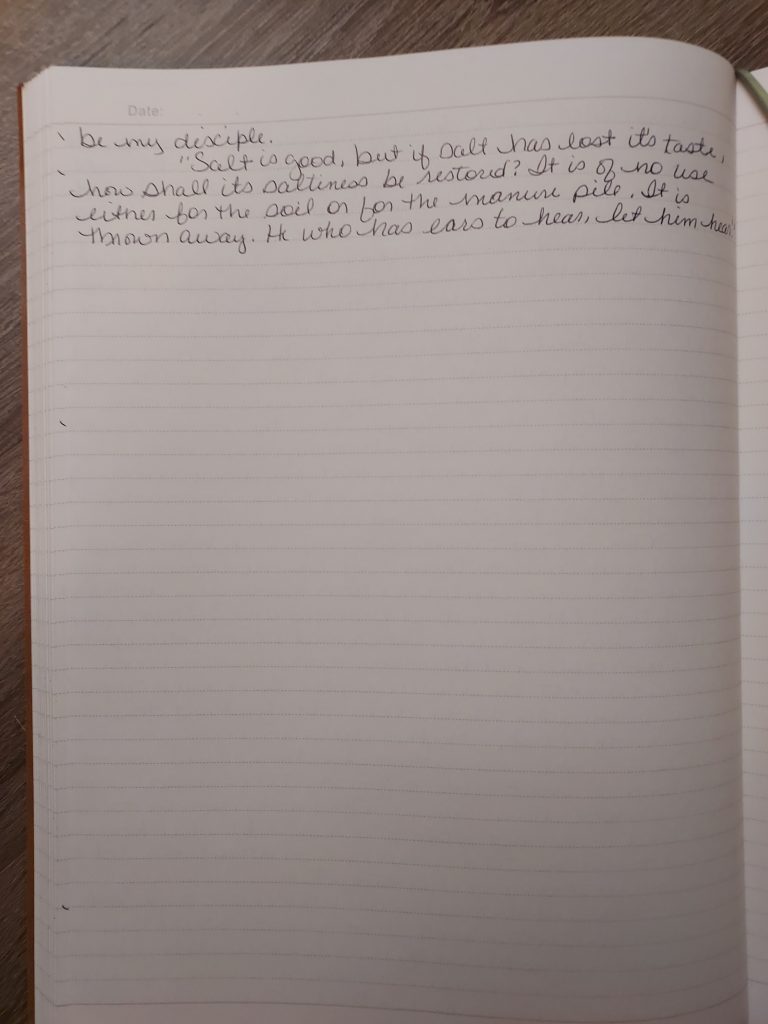 Date:
be my disciple.
"Salt is good, but if salt has lost it's taste,
how shall its saltiness be restored? It is of no use
either for the soil or for the manure pile. It is
thrown away. He who has ears to hear, let him hear."